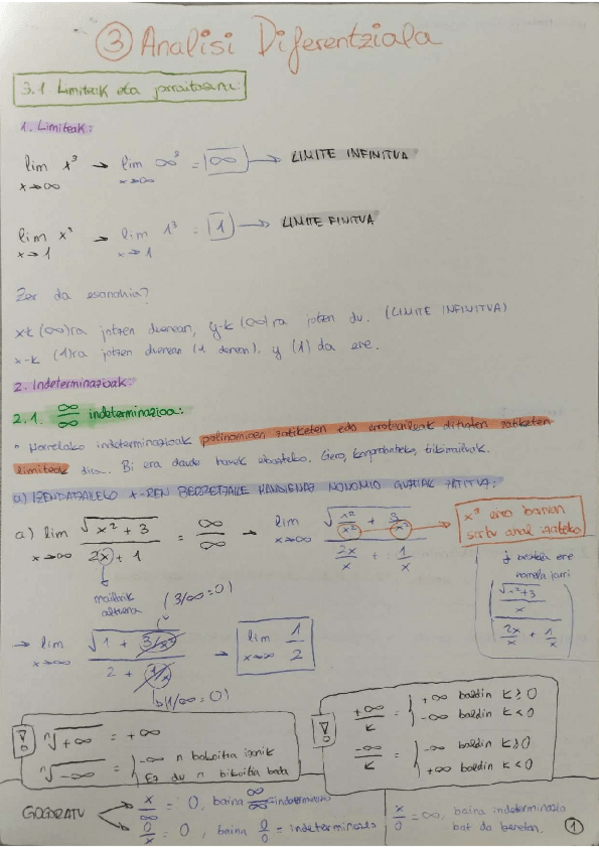 ③ Analisi Diferentziala
3.1 Limiteak eta jarraitasuna:
1. Limiteak:
lim x³ → lim ∞³ = ∞ → LIMITE INFINITUA
x→∞ x→∞
lim x³ → lim 1³ = 1 → LIMITE FINITUA
x→1 x→1
Zer da esanahia?
x-k (∞)ra jotzen duenean, y-k (∞)ra jotzen du. (LIMITE INFINITUA)
x-k (1)ra jotzen duenean (1 denean), y (1) da ere.
2. Indeterminazioak:
2.1. ∞/∞ indeterminazioa:
Horrelako indeterminazioak polinomioen zatiketen edo errotzaileak dituzten zatiketen
limiteak dira. Bi era daude hauek ebazteko. Gero, konprobatzeko,
a) IZENDATZAILEKO X-REN BERRETZAILE HANDIENAZ MONOMIO GUZTIAK ZATITUA:
a) lim √(x² + 3) / (2x + 1) = ∞/∞ → lim √(x²/x² + 3/x²) / (2x/x + 1/x)
x→∞ x→∞
x² erro barnean
sartu ahal izateko
bestela ere
horrela jarri
(√(x²+3)/x) / (2x/x + 1/x)
mailarik
altuena
(3/∞ = 0)
→ lim √(1 + 3/x²) / (2 + 1/x) → lim 1/2
x→∞ x→∞
(1/∞ = 0)
ⁿ√+∞ = +∞
ⁿ√-∞ = { -∞ n bakoitia izanik
Ez du n bikoitia bada
+∞/k = { +∞ baldin k > 0
-∞ baldin k < 0
-∞/k = { -∞ baldin k > 0
+∞ baldin k < 0
GOGORATU
x/∞ = 0, baina ∞/∞ = indeterminazio
0/x = 0, baina 0/0 = indeterminazio
x/0 = ∞, baina indeterminazio
bat da benetan.
①